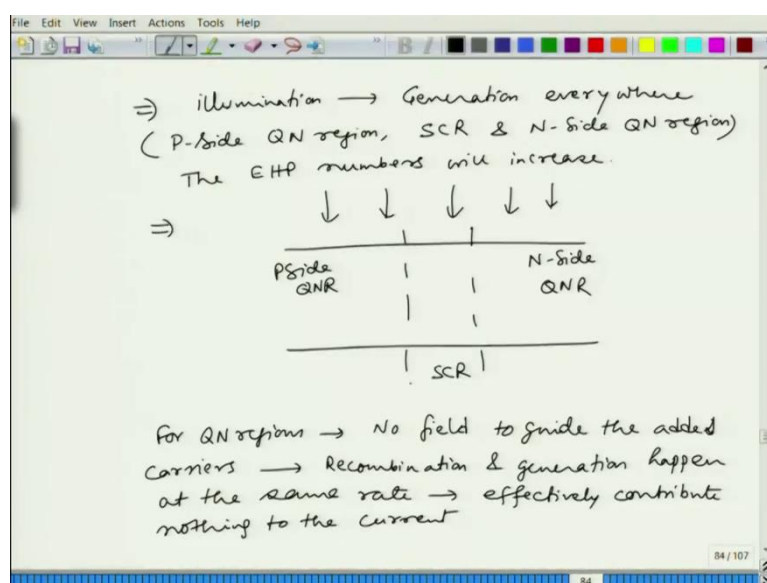 File Edit View Insert Actions Tools Help
⇒ illumination → Generation everywhere
(P-side QN region, SCR & N-side QN region)
The EHP numbers will increase.
⇒
PSide N-Side
QNR QNR
SCR
For QN regions → No field to guide the added
carriers → Recombination & generation happen
at the same rate → effectively contribute
nothing to the current
84 / 107
84